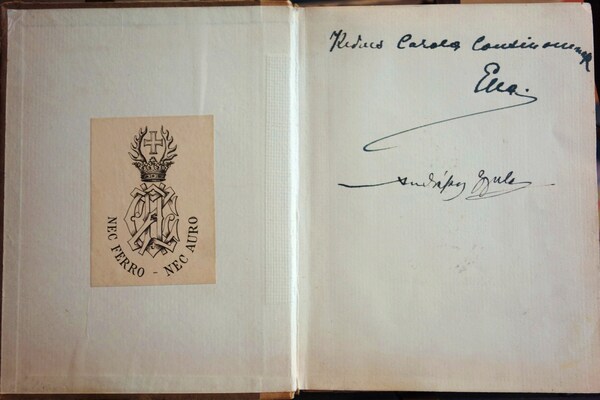 NEC FERRO - NEC AURO
Kedves Carola Cousinomnak
Ella.
Andrássy Gyula